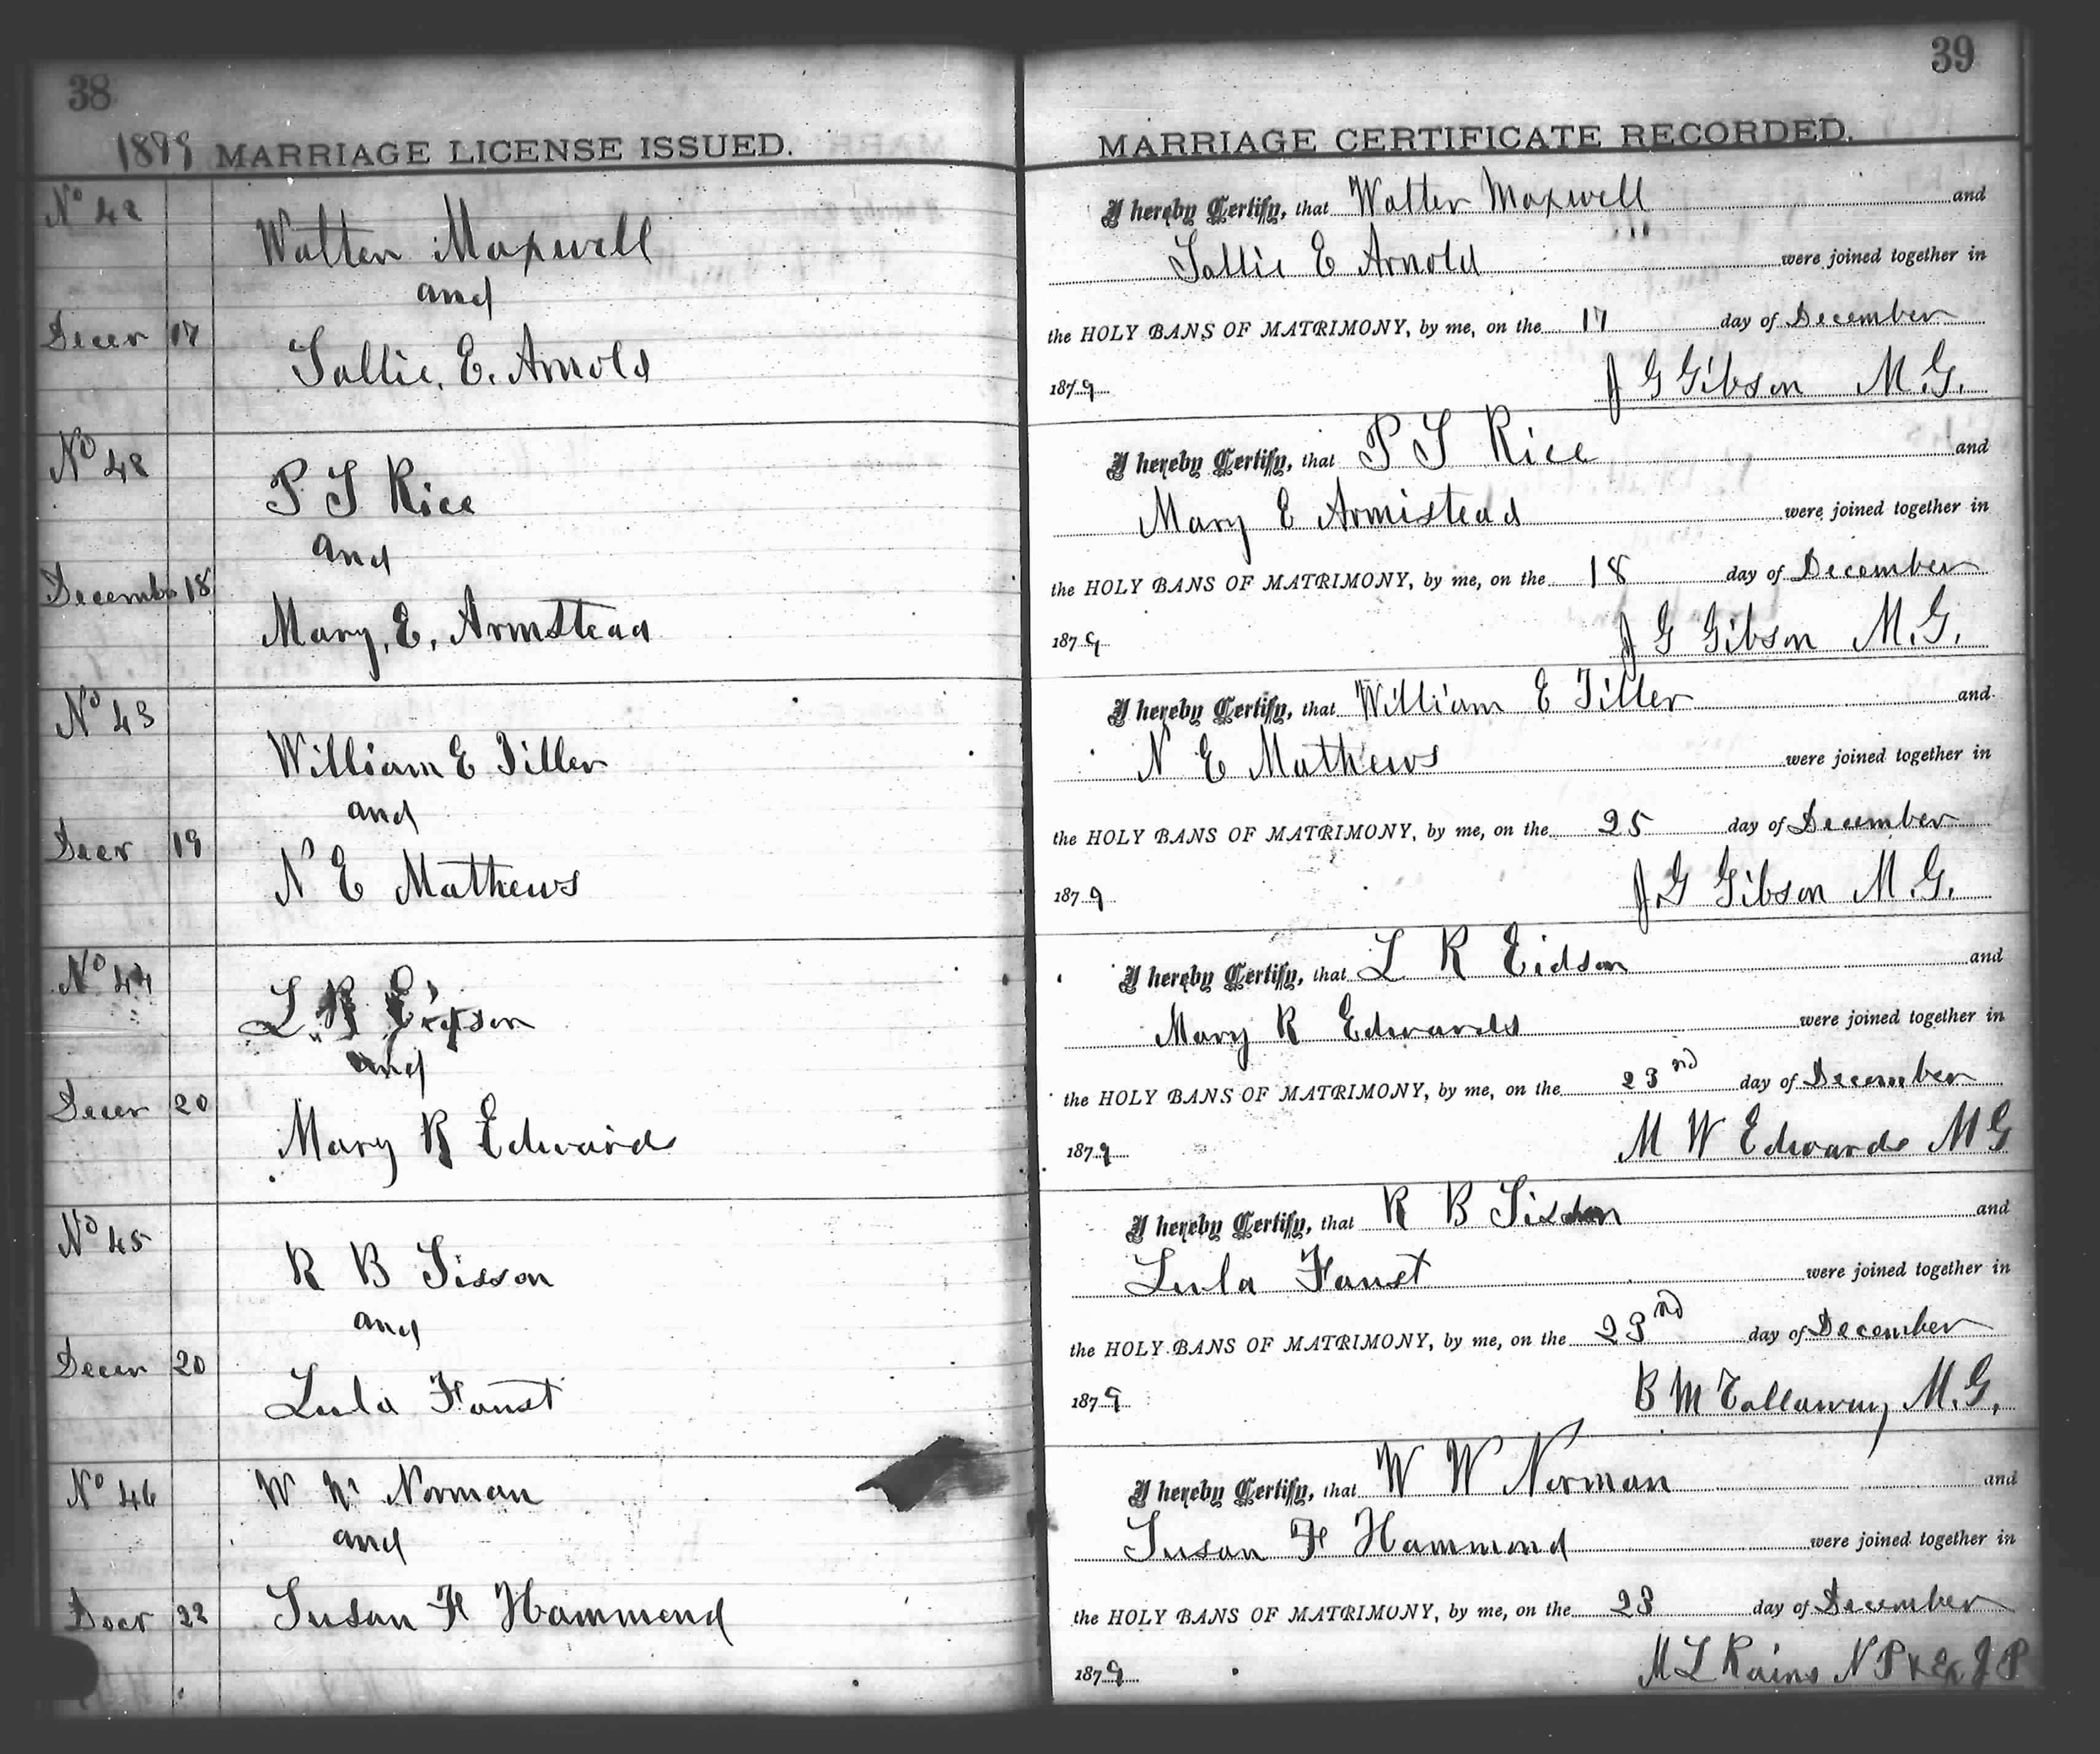 38
1879 MARRIAGE LICENSE ISSUED.
No 42
Walter Maxwell
and
Decer 17
Sallie. E. Arnold
No 48
P. S Rice
and
Decemb 18
Mary. E. Armstead
No 43
William E Tiller
and
Decr 19
N E Mathews
No 44
L R Eidson
and
Decer 20
Mary R Edwards
No 45
R B Sisson
and
Decer 20
Lula Faust
No 46
W W Norman
and
Decr 22
Susan F Hammond
39
MARRIAGE CERTIFICATE RECORDED.
I hereby Certify, that Walter Maxwell and
Sallie E Arnold were joined together in
the HOLY BANS OF MATRIMONY, by me, on the 17 day of December
1879 J G Gibson M.G.
I hereby Certify, that P S Rice and
Mary E Armistead were joined together in
the HOLY BANS OF MATRIMONY, by me, on the 18 day of December
1879 J G Gibson M.G.
I hereby Certify, that William E Tiller and
N E Mathews were joined together in
the HOLY BANS OF MATRIMONY, by me, on the 25 day of December
1879 J G Gibson M.G.
I hereby Certify, that L R Eidson and
Mary R Edwards were joined together in
the HOLY BANS OF MATRIMONY, by me, on the 23rd day of December
1879 M W Edwards MG
I hereby Certify, that R B Sisson and
Lula Faust were joined together in
the HOLY BANS OF MATRIMONY, by me, on the 23rd day of December
1879 B M Callaway M.G.
I hereby Certify, that W W Norman and
Susan F Hammond were joined together in
the HOLY BANS OF MATRIMONY, by me, on the 23 day of December
1879 M L Rains N P & Ex J P